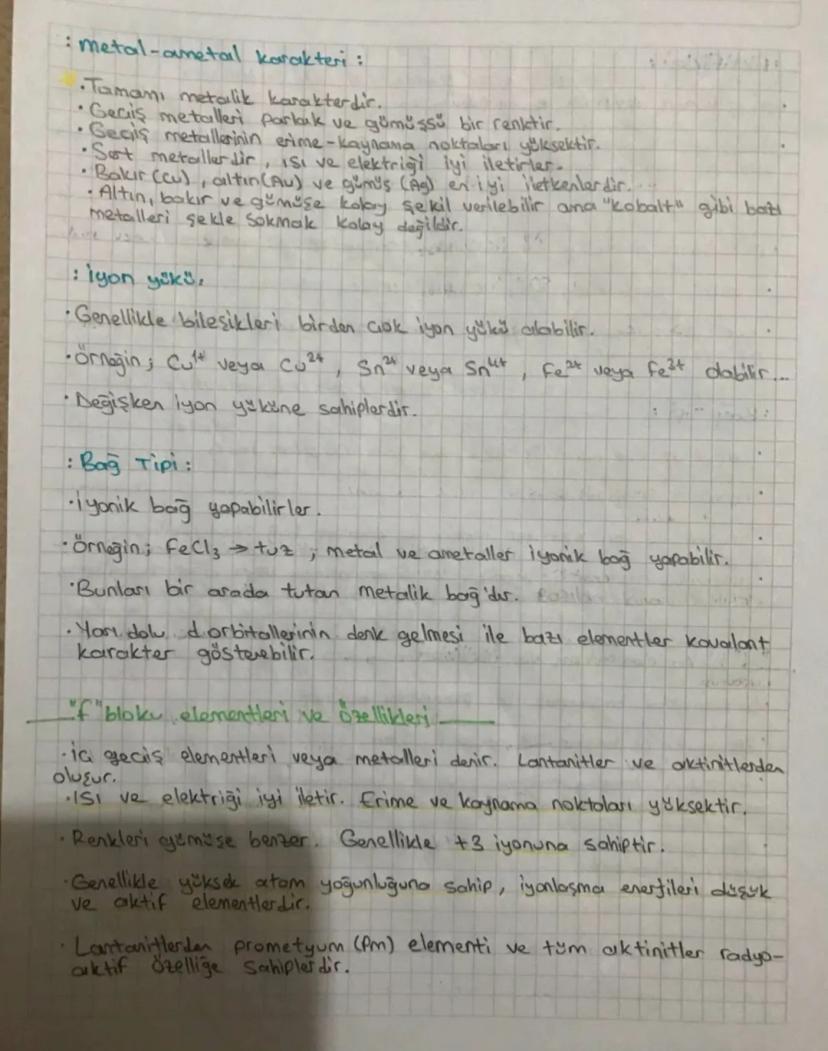 : metal-ametal karakteri :
• Tamamı metalik karakterdir.
• Geçiş metalleri parlak ve gümüşsü bir renktir.
• Geçiş metallerinin erime-kaynama noktaları yüksektir.
• Sert metallerdir, ısı ve elektriği iyi iletirler.
• Bakır (Cu), altın (Au) ve gümüş (Ag) en iyi iletkenlerdir.
• Altın, bakır ve gümüşe kolay şekil verilebilir ama "kobalt" gibi bazı
metalleri şekle sokmak kolay değildir.
: iyon yükü:
• Genellikle bileşikleri birden çok iyon yükü alabilir.
• Örneğin; Cu¹⁺ veya Cu²⁺, Sn²⁺ veya Sn⁴⁺, Fe²⁺ veya Fe³⁺ olabilir...
• Değişken iyon yüküne sahiplerdir.
: Bağ Tipi :
• iyonik bağ yapabilirler.
• Örneğin; FeCl₃ → tuz ; metal ve ametaller iyonik bağ yapabilir.
• Bunları bir arada tutan metalik bağ'dır.
• Yarı dolu d orbitallerinin denk gelmesi ile bazı elementler kovalant
karakter gösterebilir.
"f" bloku elementleri ve Özellikleri
• iç geçiş elementleri veya metalleri denir. Lantanitler ve aktinitlerden
oluşur.
• ısı ve elektriği iyi iletir. Erime ve kaynama noktaları yüksektir.
• Renkleri gümüşe benzer. Genellikle +3 iyonuna sahiptir.
• Genellikle yüksek atom yoğunluğuna sahip, iyonlaşma enerjileri düşük
ve aktif elementlerdir.
• Lantanitlerden prometyum (Pm) elementi ve tüm aktinitler radyo-
aktif özelliğe sahiplerdir.